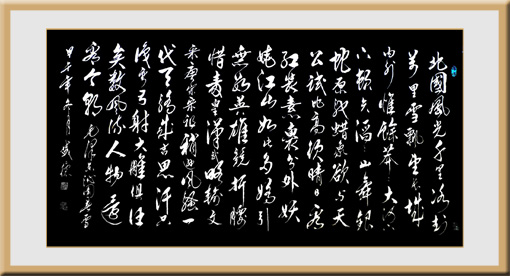 北國風光千里冰封
萬里雪飄望長城
內外惟餘莽莽大河
上下頓失滔滔山舞銀
蛇原馳蠟象欲與天
公試比高須晴日看
紅裝素裹分外妖
嬈江山如此多嬌引
無數英雄競折腰
惜秦皇漢武略輸文
采唐宗宋祖稍遜風騷一
代天驕成吉思汗只
識彎弓射大雕俱往
矣數風流人物還
看今朝 毛澤東沁園春雪
甲午年冬月